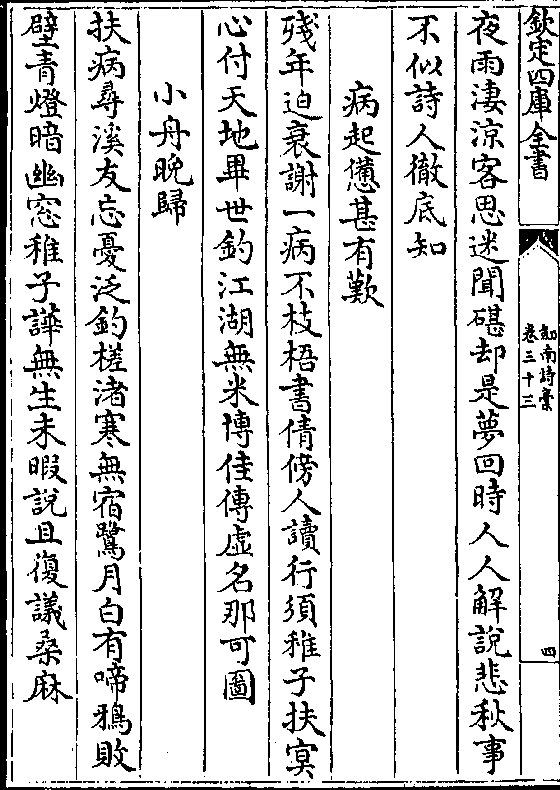 欽定四庫全書
劍南詩稾
卷三十三
四
夜雨淒涼客思迷聞碪却是夢回時人人解說悲秋事
不似詩人徹底知
病起憊甚有歎
殘年迫衰謝一病不枝梧書倩傍人讀行須稚子扶冥
心付天地畢世釣江湖無米博佳傳虛名那可圖
小舟晚歸
扶病尋溪友忘憂泛釣槎渚寒無宿鷺月白有啼鴉敗
壁青燈暗幽窓稚子譁無生未暇說且復議桑麻